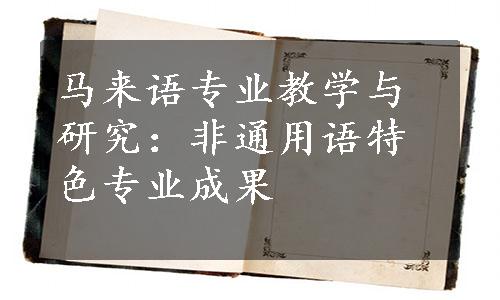 马来语专业教学与
研究：非通用语特
色专业成果